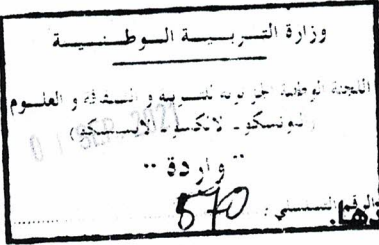 وزارة التربية الوطنية
اللجنة الوطنية الجزائرية للتربية و الثقافة و العلوم
(اليونسكو - الالكسو - الايسسكو)
" واردة "
الرقم التسلسلي : 570